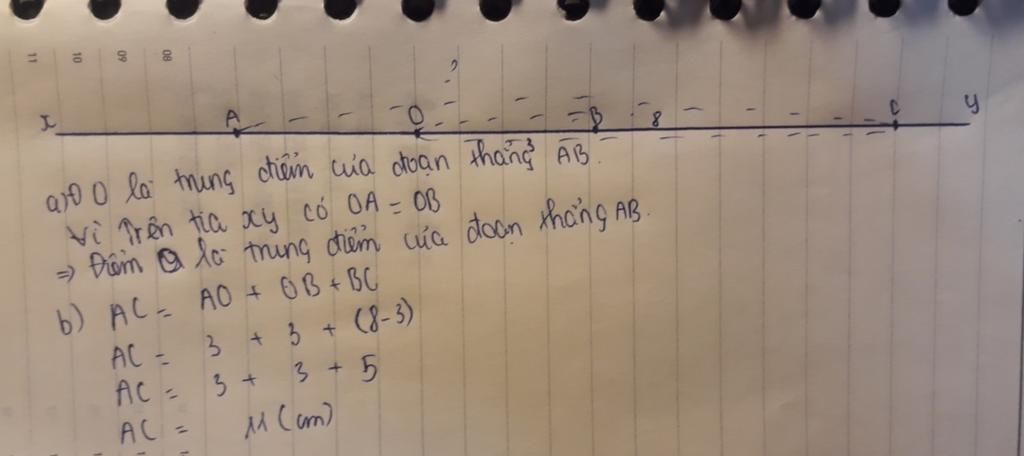 11 10 09 08
3
x A O B 8 C y
a) O là trung điểm của đoạn thẳng AB.
Vì Trên tia xy có OA = OB
=> Điểm O là trung điểm của đoạn thẳng AB.
b) AC = AO + OB + BC
AC = 3 + 3 + (8-3)
AC = 3 + 3 + 5
AC = 11 (cm)